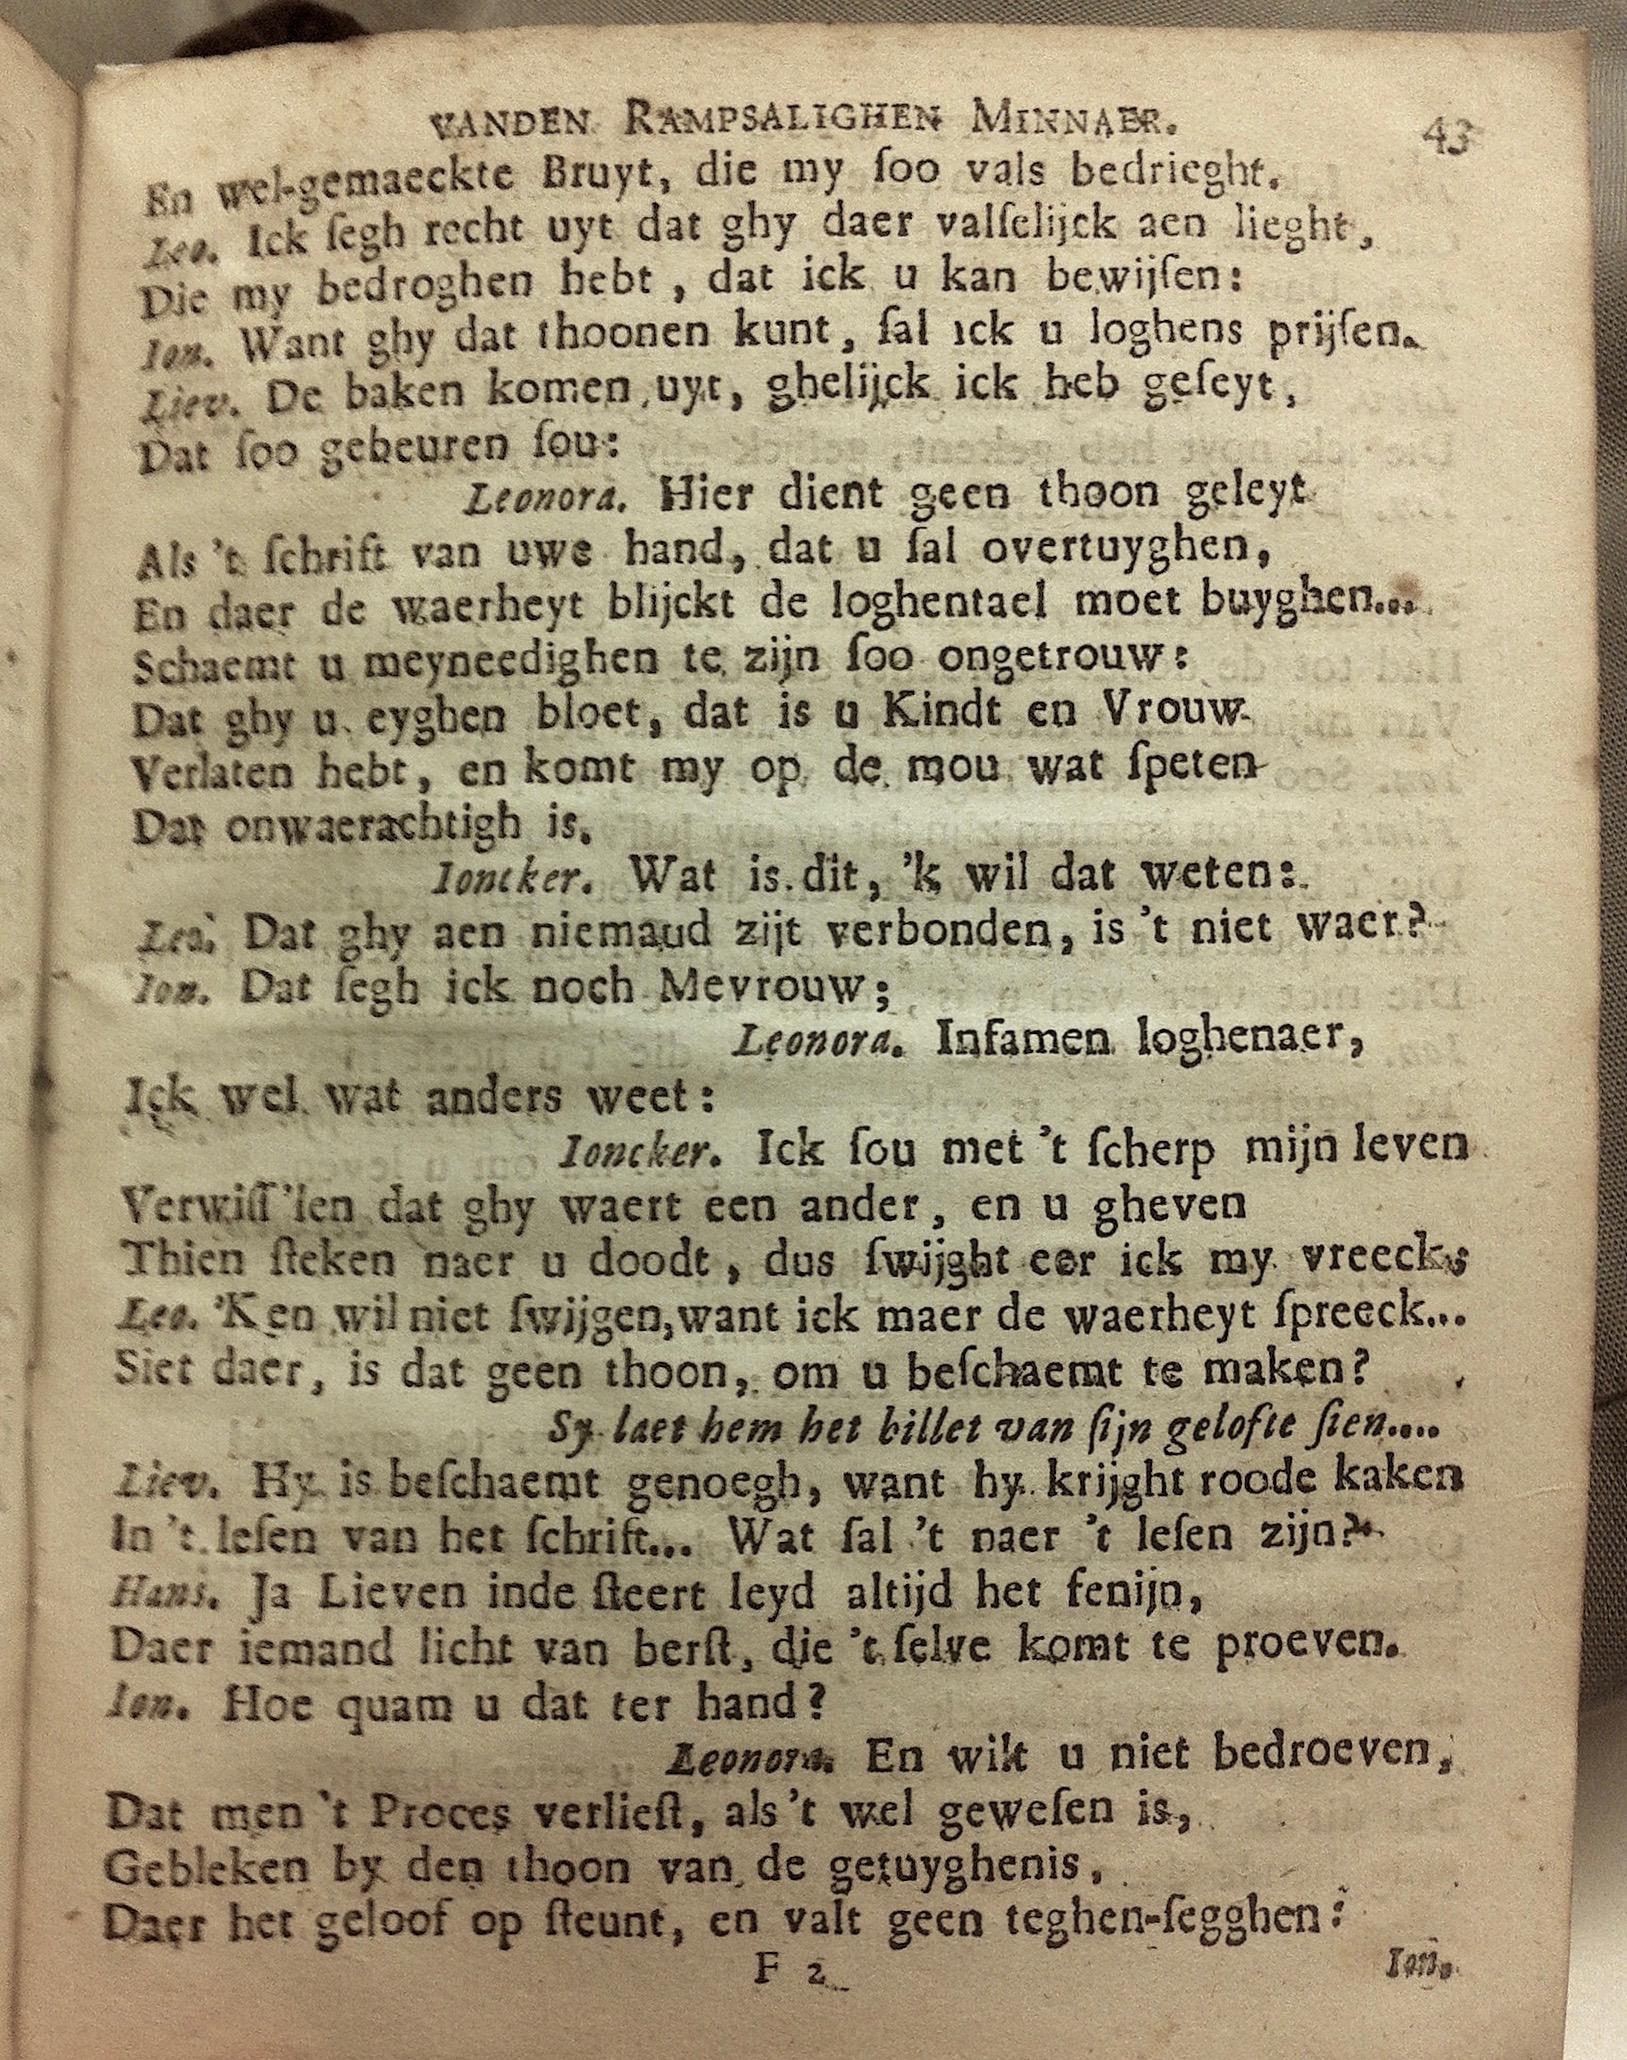 VANDEN RAMPSALIGHEN MINNAER. 43
En wel-gemaeckte Bruyt, die my ſoo vals bedrieght.
Leo. Ick ſegh recht uyt dat ghy daer valſelijck aen lieght,
Die my bedroghen hebt, dat ick u kan bewijſen:
Ion. Want ghy dat thoonen kunt, ſal ick u loghens prijſen.
Liev. De baken komen uyt, ghelijck ick heb geſeyt,
Dat ſoo gebeuren ſou:
Leonora. Hier dient geen thoon geleyt
Als 't ſchrift van uwe hand, dat u ſal overtuyghen,
En daer de waerheyt blijckt de loghentael moet buyghen...
Schaemt u meyneedighen te zijn ſoo ongetrouw:
Dat ghy u eyghen bloet, dat is u Kindt en Vrouw
Verlaten hebt, en komt my op de mou wat ſpeten
Dat onwaerachtigh is.
Ioncker. Wat is dit, 'k wil dat weten:
Leo. Dat ghy aen niemaud zijt verbonden, is 't niet waer?
Ion. Dat ſegh ick noch Mevrouw;
Leonora. Infamen loghenaer,
Ick wel wat anders weet:
Ioncker. Ick ſou met 't ſcherp mijn leven
Verwiſſ'len dat ghy waert een ander, en u gheven
Thien ſteken naer u doodt, dus ſwijght eer ick my vreeck;
Leo. 'K en wil niet ſwijgen, want ick maer de waerheyt ſpreeck...
Siet daer, is dat geen thoon, om u beſchaemt te maken?
Sy laet hem het billet van ſijn gelofte ſien....
Liev. Hy is beſchaemt genoegh, want hy krijght roode kaken
In 't leſen van het ſchrift... Wat ſal 't naer 't leſen zijn?
Hans. Ja Lieven inde ſteert leyd altijd het fenijn,
Daer iemand licht van berſt, die 't ſelve komt te proeven.
Ion. Hoe quam u dat ter hand?
Leonora. En wilt u niet bedroeven,
Dat men 't Proces verlieſt, als 't wel geweſen is,
Gebleken by den thoon van de getuyghenis,
Daer het geloof op ſteunt, en valt geen teghen-ſegghen:
F 2 Ion.